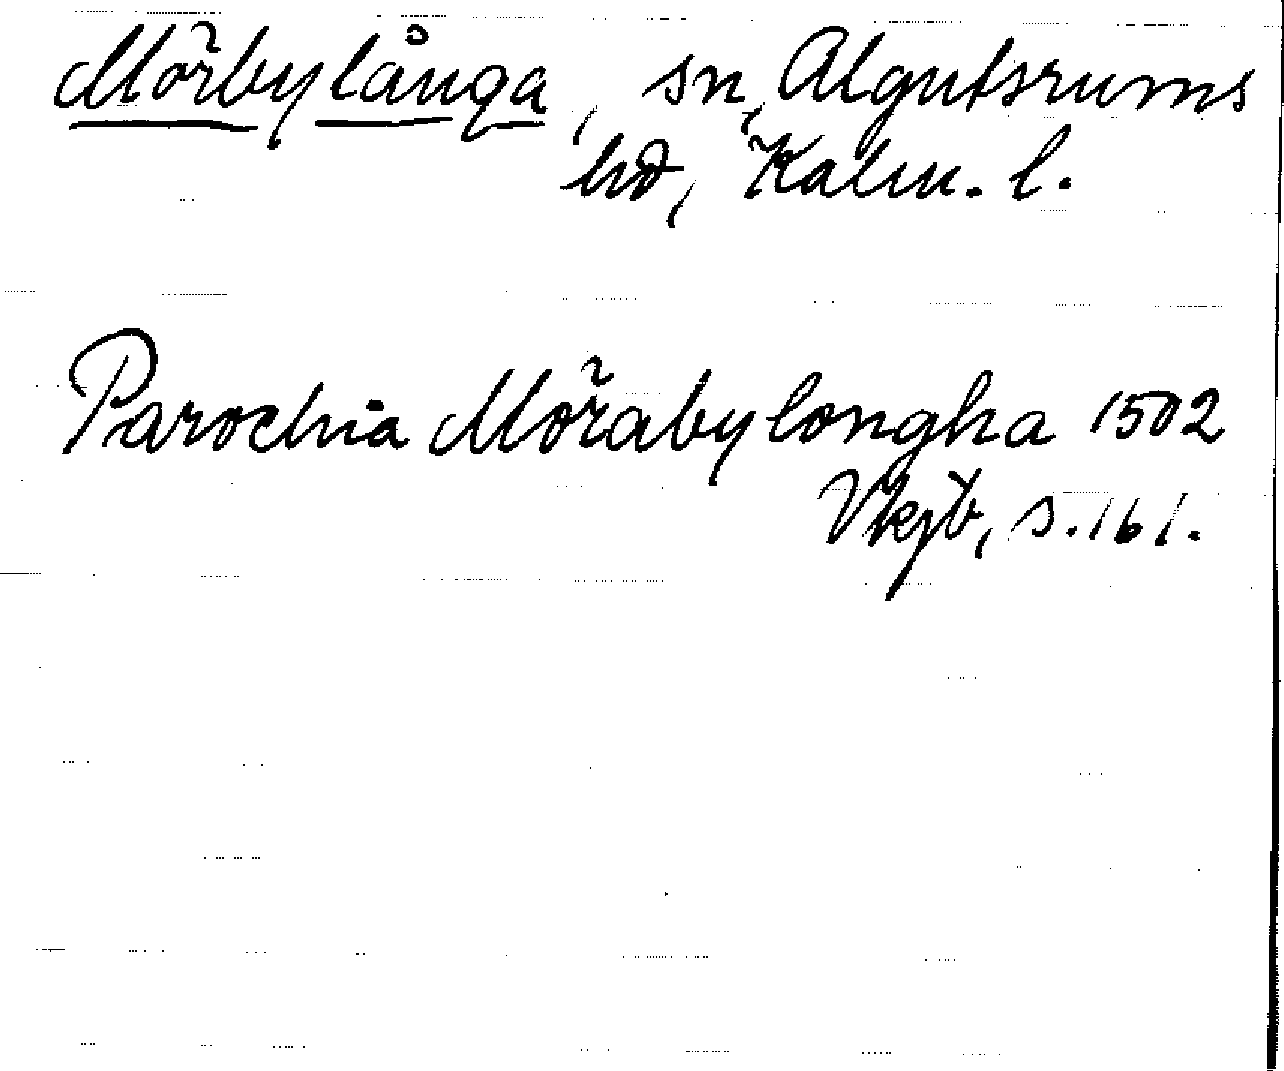 Mörbylånga, sn, Algutsrums
hd, Kalm. l.
Parochia Mörabylongha 1502
Vkjb, s. 161.